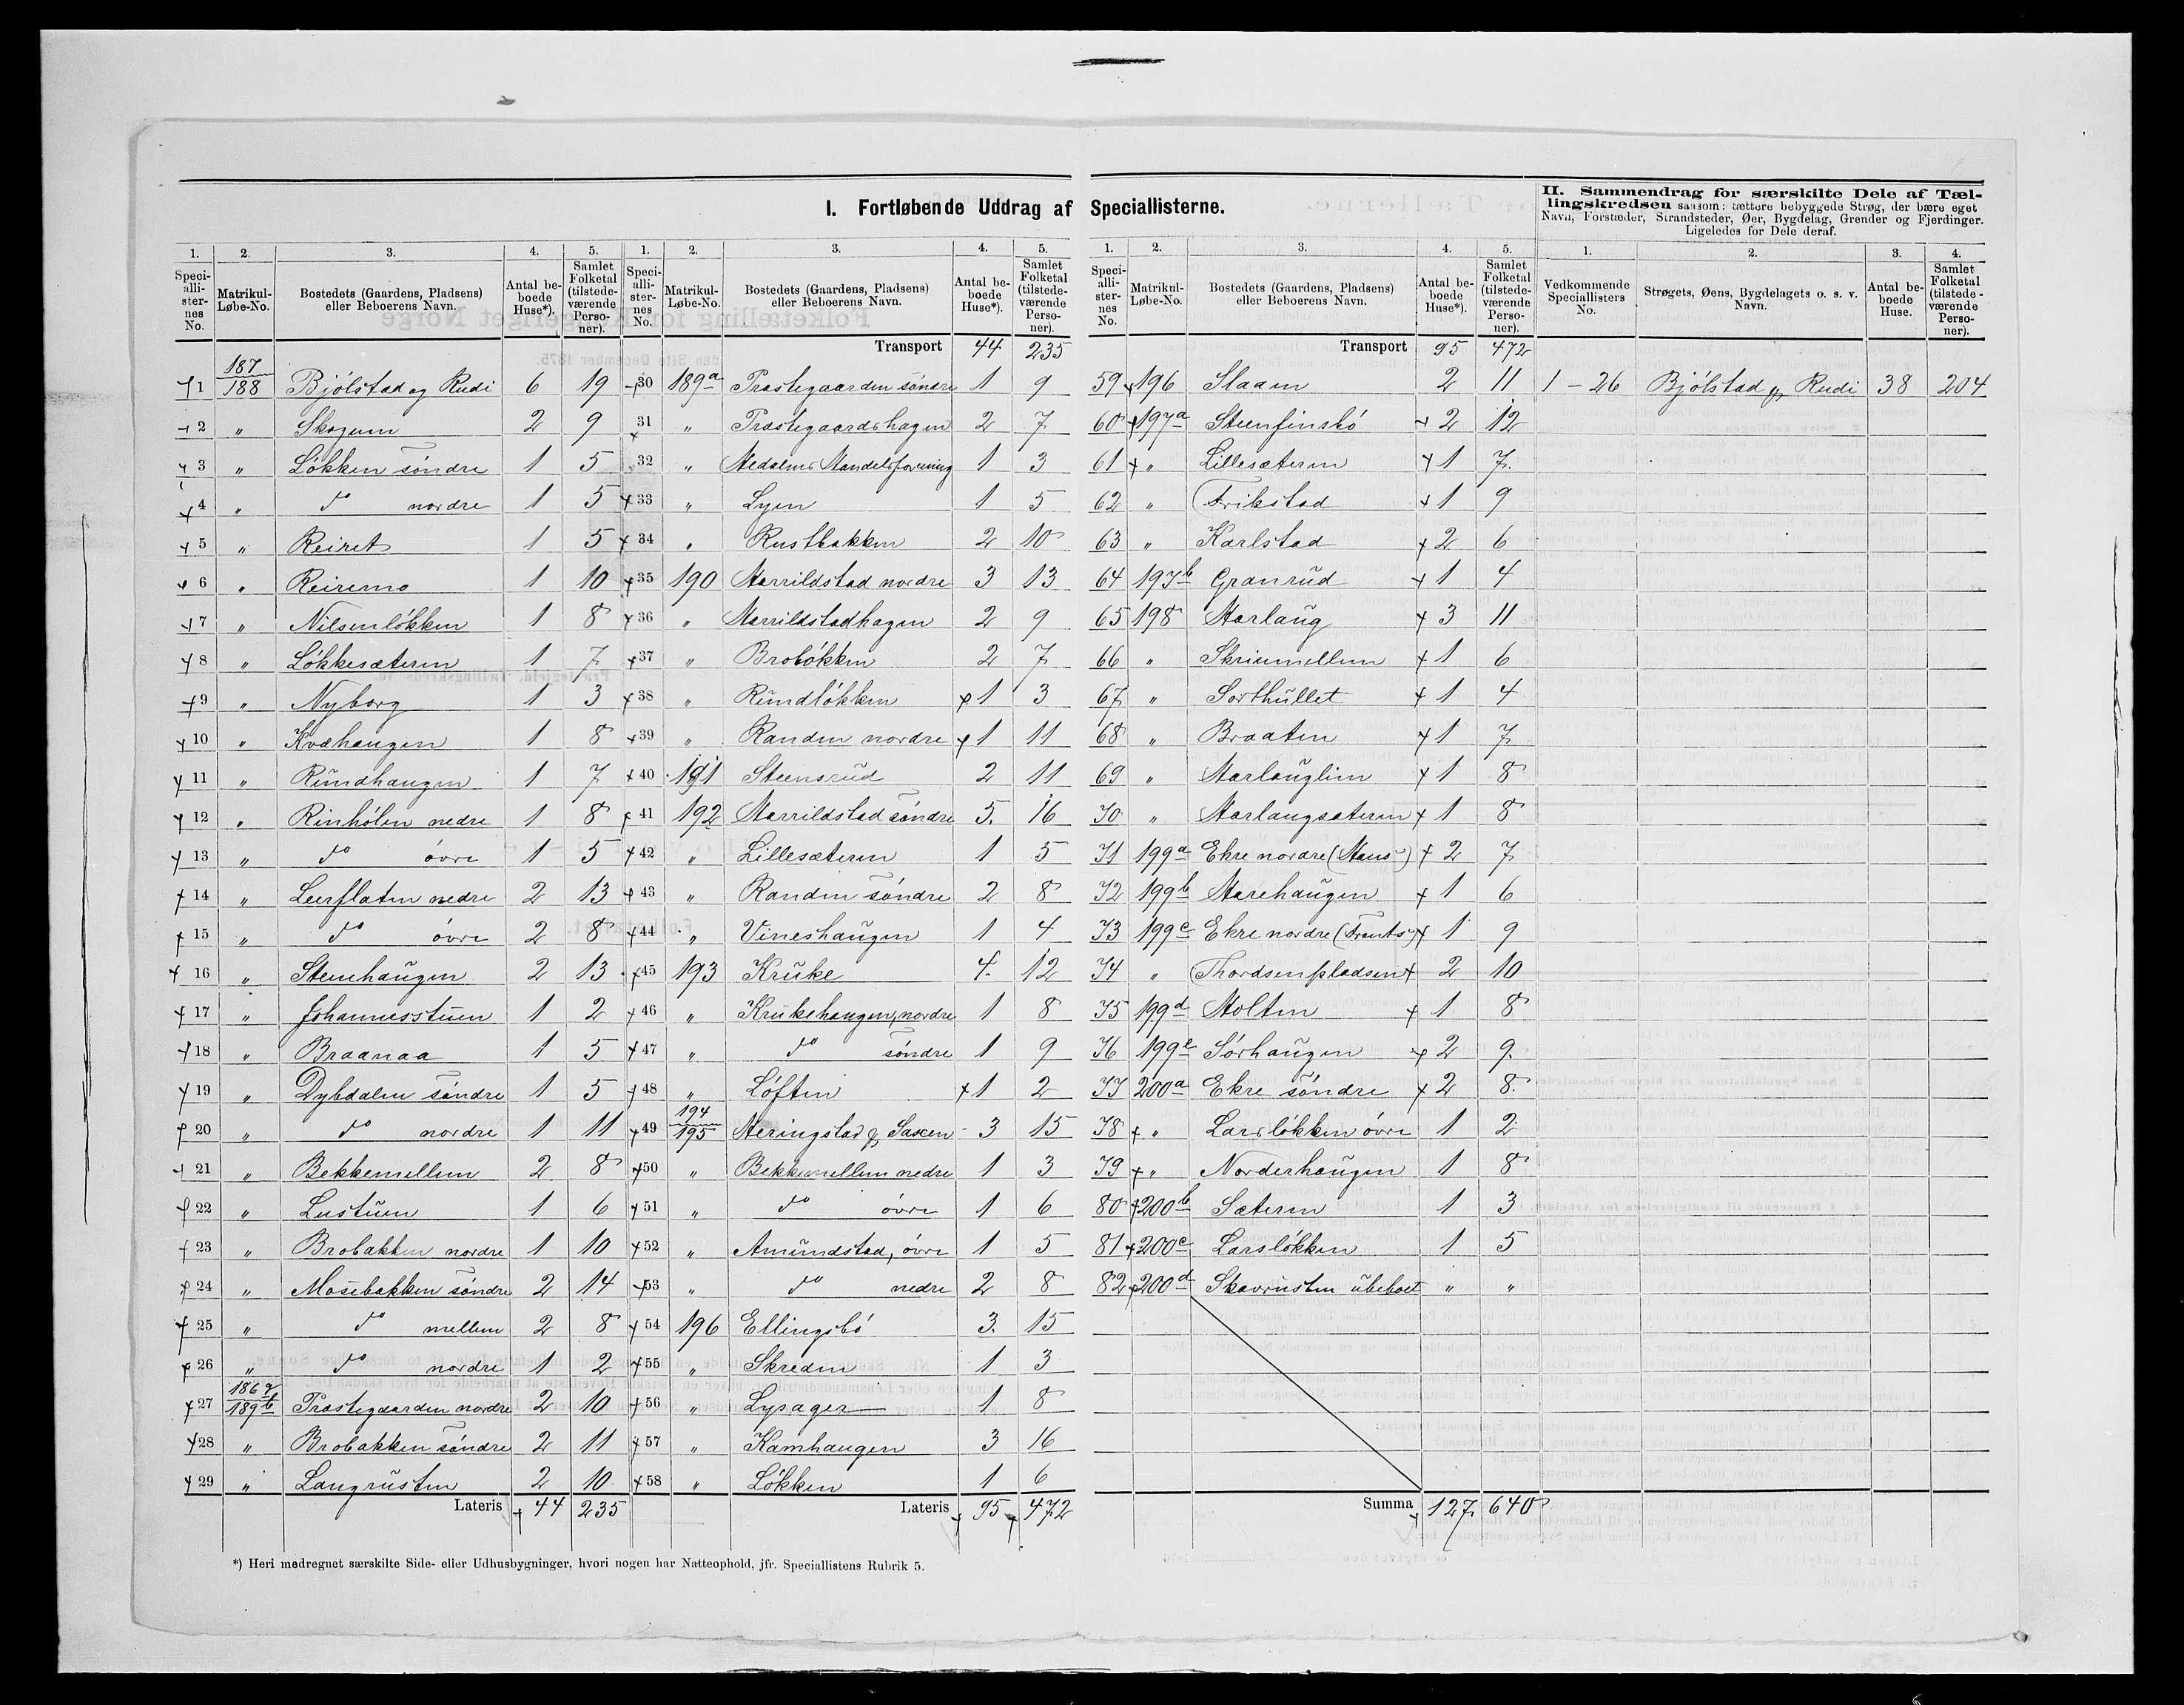 I. Fortløbende Uddrag af Speciallisterne.
II. Sammendrag for særskilte Dele af Tællingskredsen saasom: tættere bebyggede Strøg, der bære eget
Navn, Forstæder, Strandsteder, Øer, Bygdelag, Grender og Fjerdinger.
Ligeledes for Dele deraf.
1. 2. 3. 4. 5.
Speciallisternes No. Matrikul-Løbe-No. Bostedets (Gaardens, Pladsens) eller Beboerens Navn. Antal beboede Huse*). Samlet Folketal (tilstedeværende Personer).
1 187/188 Bjölstad og Rudi 6 19
2 " Skogum 2 9
3 " Lökken söndre 1 5
4 " do nordre 1 5
5 " Reiret 1 5
6 " Reiremo 1 10
7 " Nilsenlökken 1 8
8 " Lökkesæteren 1 7
9 " Nyborg 1 3
10 " Kvæhaugen 1 8
11 " Rundhaugen 1 7
12 " Rinhölen nedre 1 8
13 " do övre 1 5
14 " Leerflaten nedre 2 13
15 " do övre 2 8
16 " Steenhaugen 2 13
17 " Johannesstuen 1 2
18 " Braanaa 1 5
19 " Dybdalen söndre 1 5
20 " do nordre 1 11
21 " Bekkemellem 2 8
22 " Lustuen 1 6
23 " Brobakken nordre 1 10
24 " Mosebakken söndre 2 14
25 " do mellem 2 8
26 " do nordre 1 2
27 189b Præstegaarden nordre 2 10
28 " Brobakken söndre 2 11
29 " Langrusten 2 10
Lateris 44 235
1. 2. 3. 4. 5.
Speciallisternes No. Matrikul-Løbe-No. Bostedets (Gaardens, Pladsens) eller Beboerens Navn. Antal beboede Huse*). Samlet Folketal (tilstedeværende Personer).
Transport 44 235
30 189a Præstegaarden söndre 1 9
31 " Præstegaardshagen 2 7
32 " Hedalens Handelsforening 1 3
33 " Lyen 1 5
34 " Rustbakken 2 10
35 190 Harrildstad nordre 3 13
36 " Harrildstadhagen 2 9
37 " Brobökken 2 7
38 " Rundlökken 1 3
39 " Randen nordre 1 11
40 191 Steensrud 2 11
41 192 Harrildstad söndre 5. 16
42 " Lillesæteren 1 5
43 " Randen söndre 2 8
44 " Vineshaugen 1 4
45 193 Kruke 4. 12
46 " Krukehaugen, nordre 1 8
47 " do söndre 1 9
48 " Löften 1 2
49 194/195 Heringstad & Saxen 3 15
50 " Bekkemellem nedre 1 3
51 " do övre 1 6
52 " Amundstad, övre 1 5
53 " do nedre 2 8
54 196 Ellingsbö 3. 15
55 " Skreden 1 3
56 " Lysager 1 8
57 " Kamhaugen 3 16
58 " Lökken 1 6
Lateris 95 472
1. 2. 3. 4. 5.
Speciallisternes No. Matrikul-Løbe-No. Bostedets (Gaardens, Pladsens) eller Beboerens Navn. Antal beboede Huse*). Samlet Folketal (tilstedeværende Personer).
Transport 95 472
59 196 Slaaen 2 11
60 197a Steenfinsbö 2 12
61 " Lillesæteren 1 7
62 " Frikstad 1 9
63 " Karlstad 2 6
64 197b Granrud 1 4
65 198 Harlaug 3 11
66 " Skriumellem 1 6
67 " Sorthullet 1 4
68 " Braaten 1 7
69 " Harlauglien 1 8
70 " Harlaugsæteren 1 8
71 199a Ekre nordre (Hans) 2 7
72 199b Harehaugen 1 6
73 199c Ekre nordre (Frants) 1 9
74 " Thordsenpladsen 2 10
75 199d Holten 1 8
76 199e Sörhaugen 2 9.
77 200a Ekre söndre 2 8.
78 " Larslökken övre 1 2
79 " Norderhaugen 1 8
80 200b Sæteren 1 3
81 200c Larslökken 1 5
82 200d Skavrusten ubeboet " "
Summa 127 640
1. 2. 3. 4.
Vedkommende Speciallisters No. Strøgets, Øens, Bygdelagets o. s. v. Navn. Antal beboede Huse. Samlet Folketal (tilstedeværende Personer).
1 - 26 Bjölstad og Rudi 38 204
*) Heri medregnet særskilte Side- eller Udhusbygninger, hvori nogen har Natteophold, jfr. Speciallistens Rubrik 5.